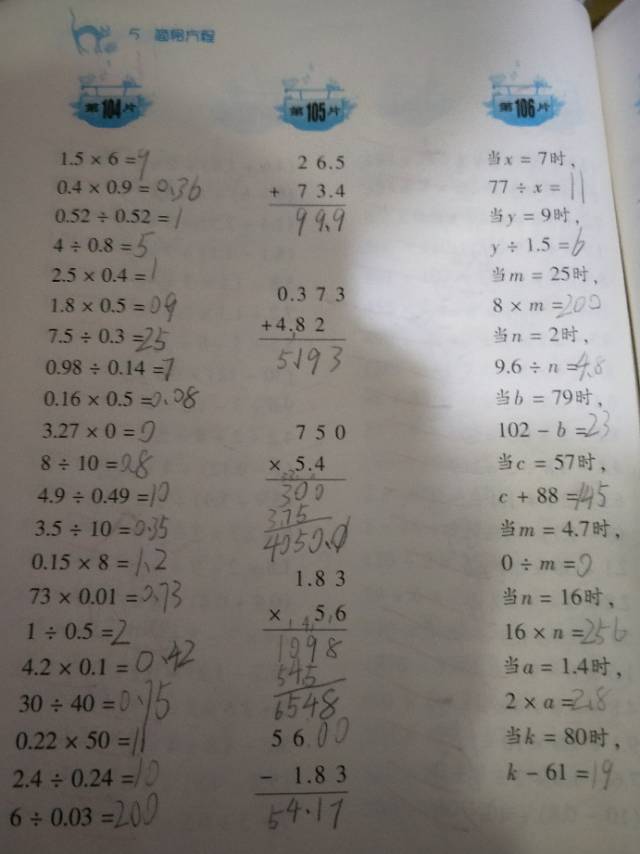 5 简易方程
第104片
1.5 × 6 = 9
0.4 × 0.9 = 0.36
0.52 ÷ 0.52 = 1
4 ÷ 0.8 = 5
2.5 × 0.4 = 1
1.8 × 0.5 = 0.9
7.5 ÷ 0.3 = 25
0.98 ÷ 0.14 = 7
0.16 × 0.5 = 0.08
3.27 × 0 = 0
8 ÷ 10 = 0.8
4.9 ÷ 0.49 = 10
3.5 ÷ 10 = 0.35
0.15 × 8 = 1.2
73 × 0.01 = 0.73
1 ÷ 0.5 = 2
4.2 × 0.1 = 0.42
30 ÷ 40 = 0.75
0.22 × 50 = 11
2.4 ÷ 0.24 = 10
6 ÷ 0.03 = 200
第105片
26.5
+ 73.4
99.9
0.373
+4.82
5.193
750
× 5.4
300
375
4050.0
1.83
× 5.6
1098
545
6548
56.00
− 1.83
54.17
第106片
当x = 7时，
77 ÷ x = 11
当y = 9时，
y ÷ 1.5 = 6
当m = 25时，
8 × m = 200
当n = 2时，
9.6 ÷ n = 4.8
当b = 79时，
102 − b = 23
当c = 57时，
c + 88 = 145
当m = 4.7时，
0 ÷ m = 0
当n = 16时，
16 × n = 256
当a = 1.4时，
2 × a = 2.8
当k = 80时，
k − 61 = 19